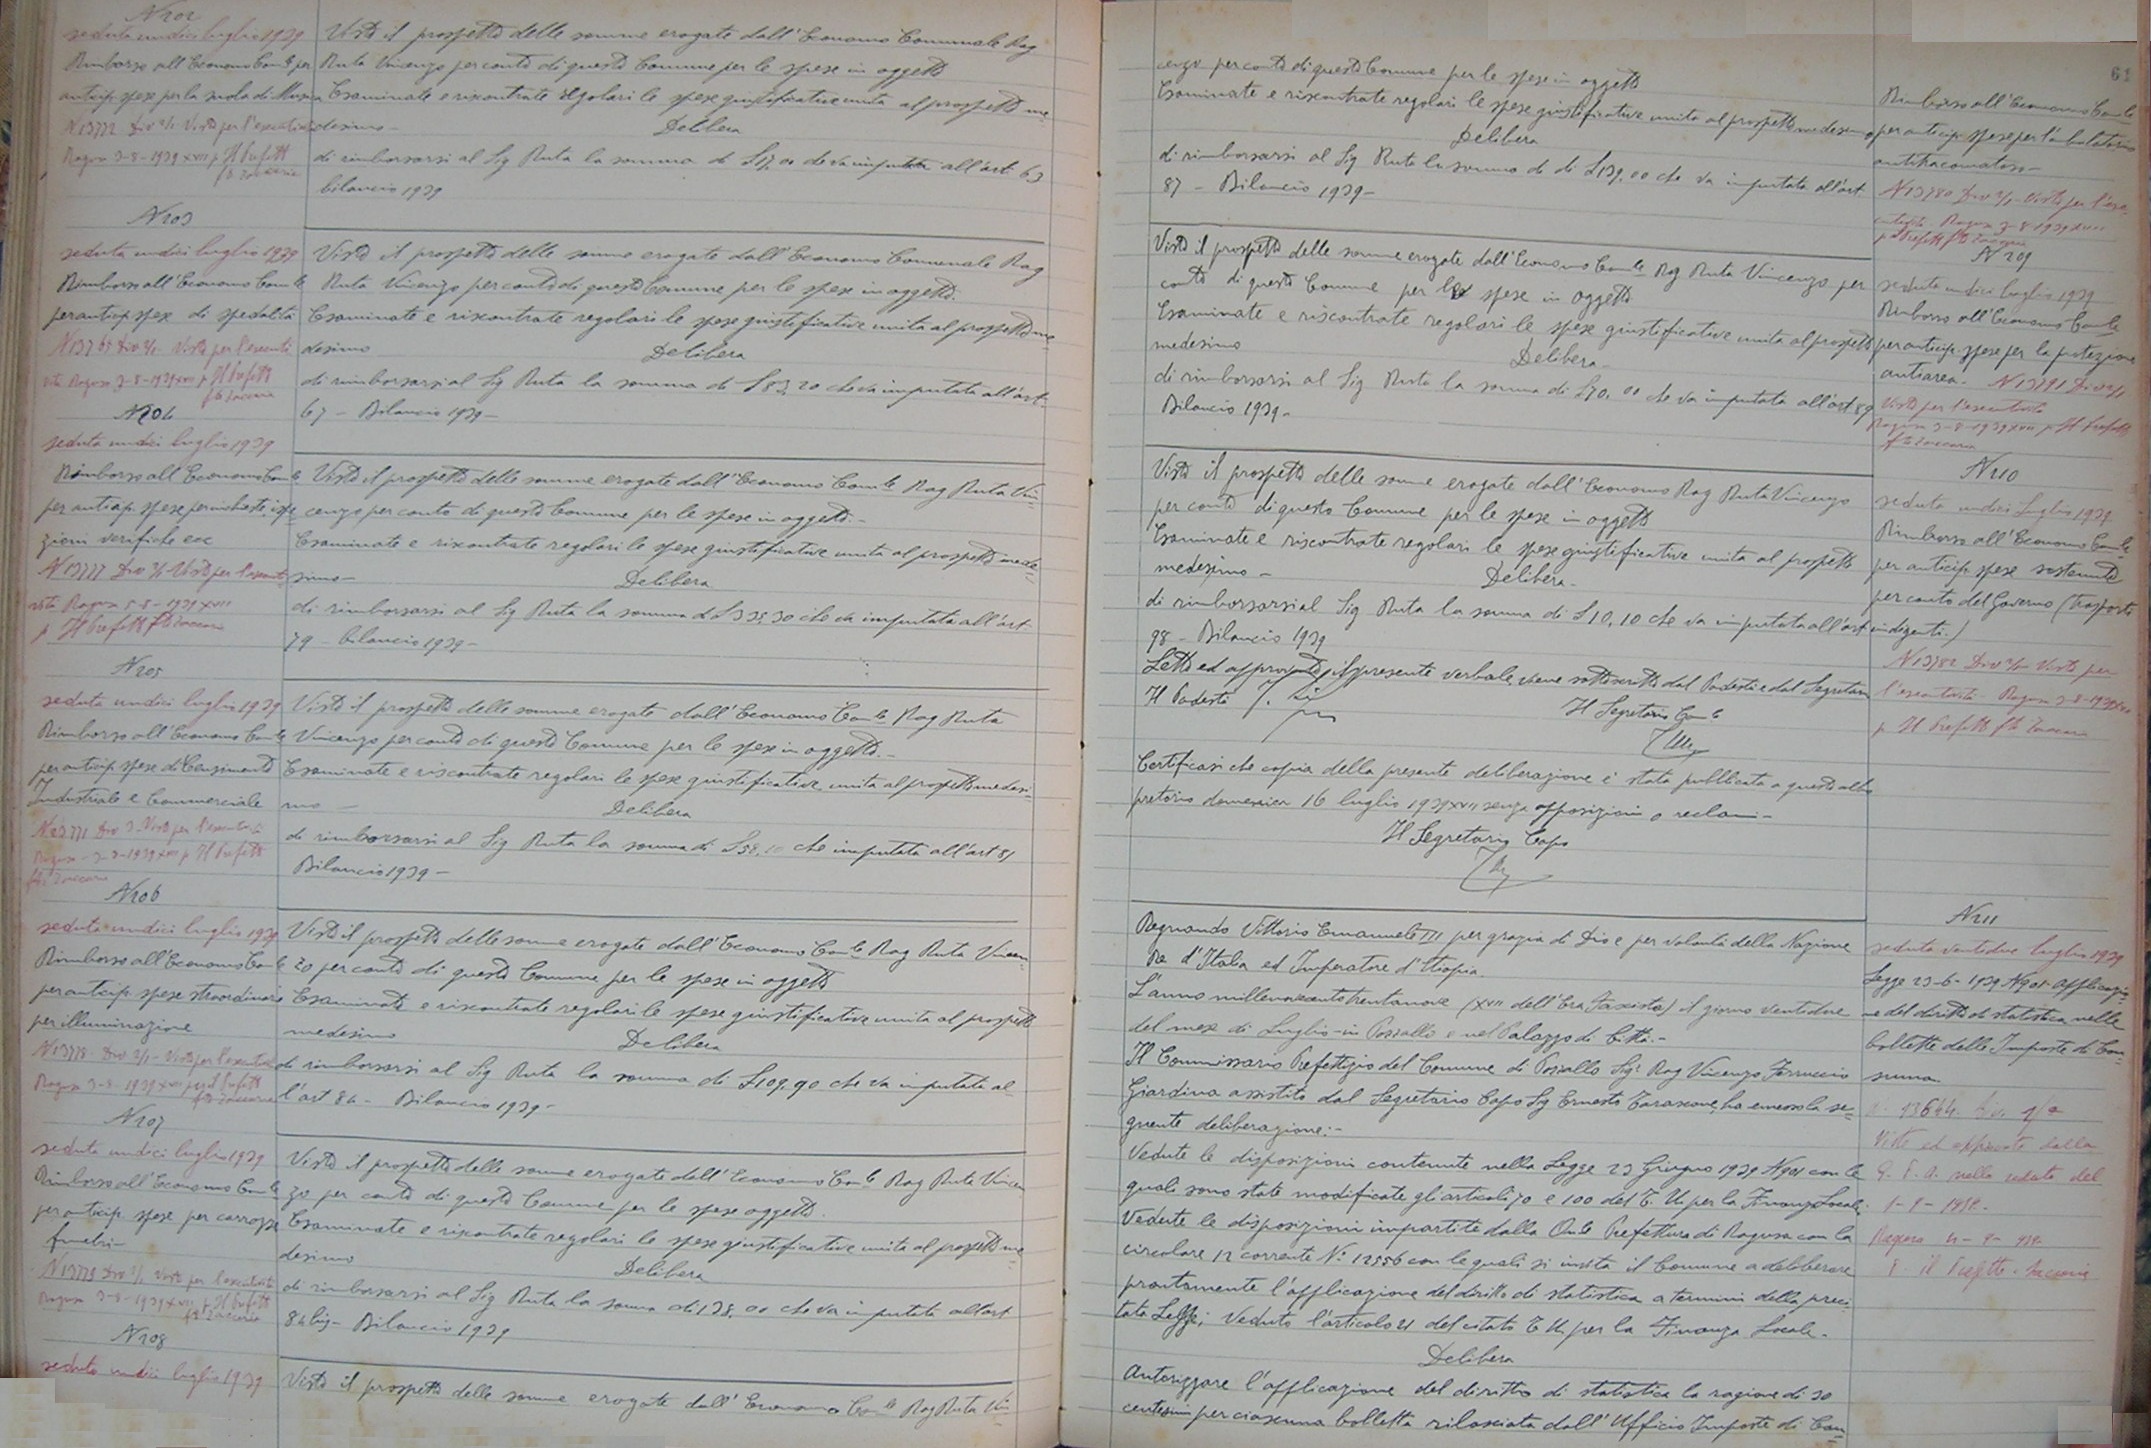 N 202
seduta undici luglio 1939
Rimborso all'Economo Com.le per
anticip. spese per la scuola di Musica
N 13772 Div 2/1 Visto per l'esecutività
Ragusa 3-8-1939 XVII p. Il Prefetto
f.to Zaccaria
Visto il prospetto delle somme erogate dall'Economo Comunale Rag
Ruta Vincenzo per conto di questo Comune per le spese in oggetto
Esaminate e riscontrate regolari le spese giustificative unita al prospetto me=
desimo -
Delibera
di rimborsarsi al Sig Ruta la somma di che va imputata all'art 63
bilancio 1939
N 203
seduta undici luglio 1939
Rimborso all'Economo Com.le
per anticip. spese di spedalità
Div 2/1 Visto per l'esecuti
vità Ragusa 3-8-1939 XVII p Il Prefetto
f.to Zaccaria
Visto il prospetto delle somme erogate dall'Economo Comunale Rag
Ruta Vincenzo per conto di questo Comune per le spese in oggetto.
Esaminate e riscontrate regolari le spese giustificative unita al prospetto me=
desimo
Delibera
di rimborsarsi al Sig Ruta la somma di £ 83,20 che va imputata all'art.
67 - Bilancio 1939 -
N 204
seduta undici luglio 1939
Rimborso all'Economo Com.le
per anticip. spese per inchieste, ispe=
zioni verifiche ecc
N 13777 Div 2/1 Visto per l'esecuti
vità Ragusa 5-8-1939 XVII
p Il Prefetto f.to Zaccaria
Visto il prospetto delle somme erogate dall'Economo Com.le Rag Ruta Vin=
cenzo per conto di questo Comune per le spese in oggetto. -
Esaminate e riscontrate regolari le spese giustificative unita al prospetto mede=
simo -
Delibera
di rimborsarsi al Sig Ruta la somma di £ 325,30 che va imputata all'art.
79 - bilancio 1939 -
N 205
seduta undici luglio 1939
Rimborso all'Economo Com.le
per anticip. spese di Censimento
Industriale e Commerciale
N 13771 Div 3 Visto per l'esecutività
Ragusa - 3-8-1939 XVII p Il Prefetto
f.to Zaccaria
Visto il prospetto delle somme erogate dall'Economo Com.le Rag Ruta
Vincenzo per conto di questo Comune per le spese in oggetto. -
Esaminate e riscontrate regolari le spese giustificative unita al prospetto medesi=
mo -
Delibera
di rimborsarsi al Sig Ruta la somma di £ 58,10 che imputata all'art 81
Bilancio 1939 -
N 206
seduta undici luglio 1939
Rimborso all'Economo Com.le
per anticip. spese straordinarie
per illuminazione
N 13778 Div 2/1 - Visto per l'esecutività
Ragusa 3-8-1939 XVII p il Prefetto
f.to Zaccaria
Visto il prospetto delle somme erogate dall'Economo Com.le Rag Ruta Vincen=
zo per conto di questo Comune per le spese in oggetto
Esaminate e riscontrate regolari le spese giustificative unita al prospetto
medesimo
Delibera
di rimborsarsi al Sig Ruta la somma di £ 109.90 che va imputata al=
l'art 84 - Bilancio 1939 -
N 207
seduta undici luglio 1939
Rimborso all'Economo Com.le
per anticip. spese per carrozze
funebri -
N 13779 Div 2/1 Visto per l'esecutività
Ragusa 3-8-1939 XVII p. Il Prefetto
f.to Zaccaria
Visto il prospetto delle somme erogate dall'Economo Com.le Rag Ruta Vincen
zo per conto di questo Comune per le spese oggetto.
Esaminate e riscontrate regolari le spese giustificative unita al prospetto me
desimo
Delibera
di rimborsarsi al Sig Ruta la somma di che va imputata all'art
84 bis - Bilancio 1939
N 208
seduta undici luglio 1939
Visto il prospetto delle somme erogate dall'Economo Com.le Rag Ruta Vin
61
cenzo per conto di questo Comune per le spese in oggetto
Esaminate e riscontrate regolari le spese giustificative unita al prospetto medesimo
Delibera
di rimborsarsi al Sig Ruta la somma di di £ 139.00 che va imputata all'art.
87 - Bilancio 1939 -
Rimborso all'Economo Com.le
per anticip. spese per l'ambulatorio
antitracomatoso -
N 13780 Div 2/1 - Visto per l'ese=
cutività Ragusa 3-8-1939 XVII
p Il Prefetto f.to Zaccaria
N 209
seduta undici luglio 1939
Rimborso all'Economo Com.le
per anticip. spese per la protezione
antiarea. N 13781 Div 2/1
Visto per l'esecutività
Ragusa 3-8-1939 XVII p Il Prefetto
f.to Zaccaria
Visto il prospetto delle somme erogate dall'Economo Com.le Rag Ruta Vincenzo per
conto di questo Comune per le spese in oggetto
Esaminate e riscontrate regolari le spese giustificative unita al prospetto
medesimo
Delibera -
di rimborsarsi al Sig Ruta la somma di £ 70,00 che va imputata all'art 89
Bilancio 1939 -
N 210
seduta undici Luglio 1939
Rimborso all'Economo Com.le
per anticip. spese sostenute
per conto del Governo (trasporto
indigenti.)
N 13782 Div 2/1 Visto per
l'esecutività - Ragusa 3-8-1939 XVII
p Il Prefetto f.to Zaccaria
Visto il prospetto delle somme erogate dall'Economo Rag Ruta Vincenzo
per conto di questo Comune per le spese in oggetto
Esaminate e riscontrate regolari le spese giustificative unita al prospetto
medesimo -
Delibera -
di rimborsarsi al Sig Ruta la somma di £ 10,10 che va imputata all'art
98 - Bilancio 1939
Letto ed approvato, il presente verbale viene sottoscritto dal Podestà e dal Segretario
Il Podestà
Il Segretario Com.le
Certificasi che copia della presente deliberazione è stata pubblicata a questo albo
pretorio domenica 16 luglio 1939 XVII senza opposizioni o reclami -
Il Segretario Capo
N 211
seduta ventidue luglio 1939
Legge 23-6-1939 N 901 - Applicazio=
ne del diritto di statistica nelle
bollette delle Imposte di Con=
sumo.
N. 13644 Div. 2/2
Visto ed approvato dalla
G. P. A. nella seduta del
Il Prefetto - Zaccaria
Regnando Vittorio Emanuele III per grazia di Dio e per volontà della Nazione
Re d'Italia ed Imperatore d'Etiopia.
L'anno millenovecentotrentanove (XVII dell'Era Fascista) il giorno ventidue
del mese di Luglio - in Pozzallo e nel Palazzo di Città. -
Il Commissario Prefettizio del Comune di Pozzallo Sig. Rag Vincenzo Ferruccio
Giardina assistito dal Segretario Capo Sig Ernesto Tarascone, ha emesso la se=
guente deliberazione: -
Vedute le disposizioni contenute nella Legge 23 Giugno 1939 N 901 con le
quali sono state modificate gli articoli 70 e 100 del T. U. per la Finanza Locale.
Vedute le disposizioni impartite dalla On.le Prefettura di Ragusa con la
circolare 12 corrente N.° 12556 con le quali si invita il Comune a deliberare
prontamente l'applicazione del diritto di statistica a termini della preci
tata Legge; Veduto l'articolo 21 del citato T U. per la Finanza Locale -
Delibera
Autorizzare l'applicazione del diritto di statistica la ragione di 20
centesimi per ciascuna bolletta rilasciata dall'Ufficio Imposte di Con=